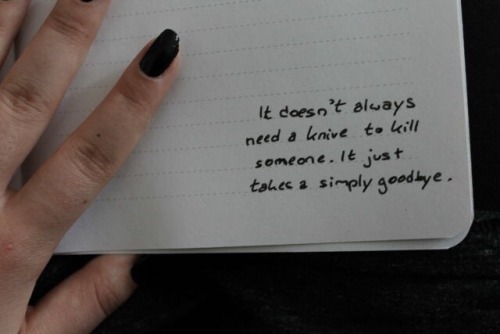 It doesn't always
need a knive to kill
someone. It just
takes a simply goodbye.